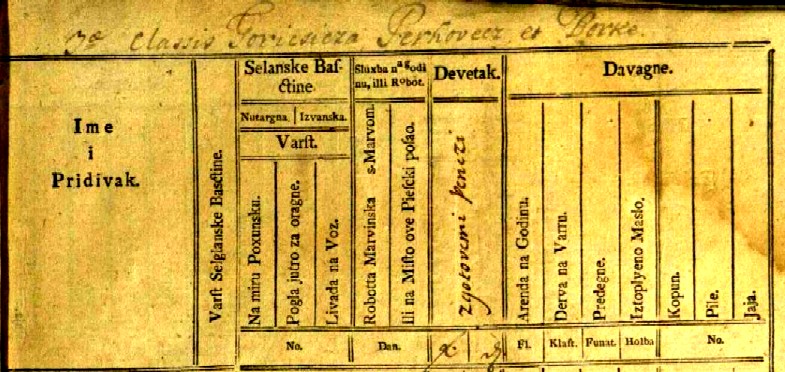 3ae Classis Goricsicza, Perhovecz et Borke.
Ime
i
Pridivak.
Varſt Selglanske Basčtine.
Selanske Baſ-
čtine.
Nutargna. Izvanska.
Varſt.
Na miru Poxunsku.
Pogla jutro za oragne.
Livada na Voz.
No.
Sluxba na godi
nu, illi Robot.
Robotta Marvinska s-Marvom.
Ili na Miſto ove Pieſcki poſao.
Dan.
Devetak.
zgotovemi penezi
Davagne.
Arenda na Godinu.
Fl.
Derva na Varru.
Klaft.
Predegne.
Funat.
Iztoplyeno Maslo.
Holba
Kopun.
Pile.
Jaja.
No.